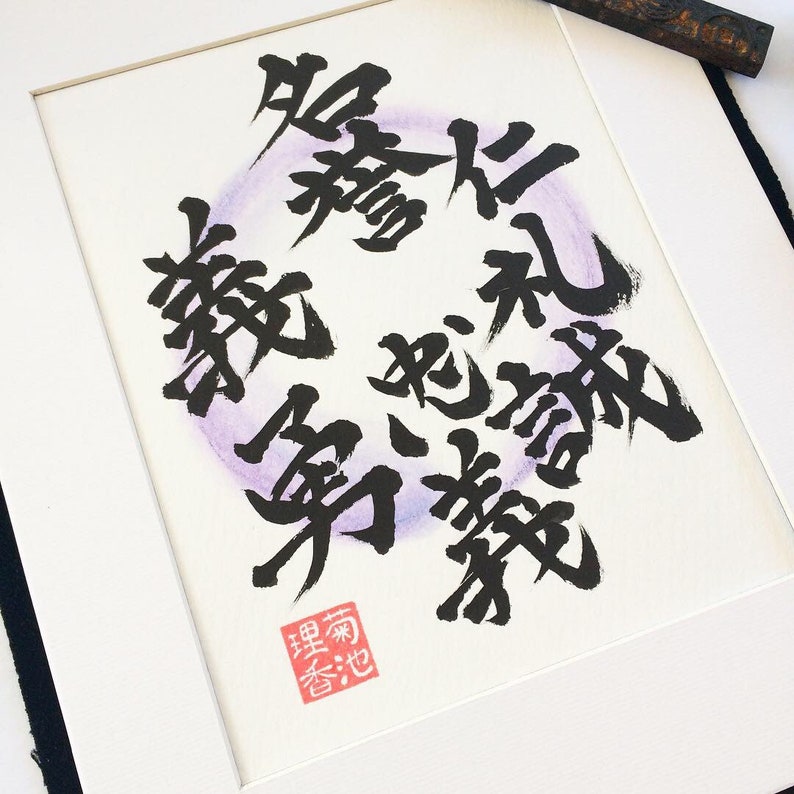 義
勇
仁
礼
誠
名誉
忠義
菊池
理香